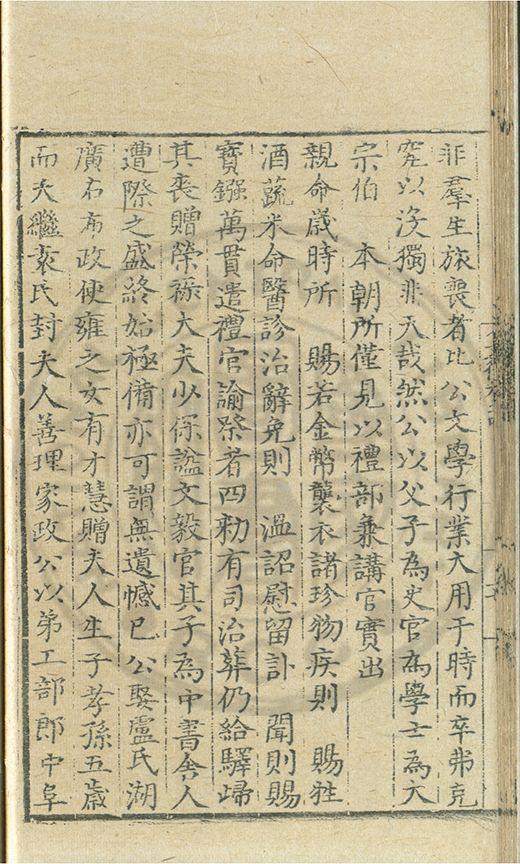 非羣生旅喪者比公文學行業大用于時而卒弗克
究以沒獨非天哉然公以父子為史官為學士為大
宗伯　本朝所僅見以禮部兼講官實出
親命歲時所　賜若金幣襲衣諸珍物疾則　賜牲
酒蔬米命醫診治辭免則　溫詔慰留訃　聞則賜
寶鏹萬貫遣禮官諭祭者四勑有司治葬仍給驛歸
其喪贈榮祿大夫少保諡文毅官其子為中書舍人
遭際之盛終始極備亦可謂無遺憾已公娶盧氏湖
廣右布政使雍之女有才慧贈夫人生子孝孫五歲
而夭繼袁氏封夫人善理家政公以弟工部郎中阜